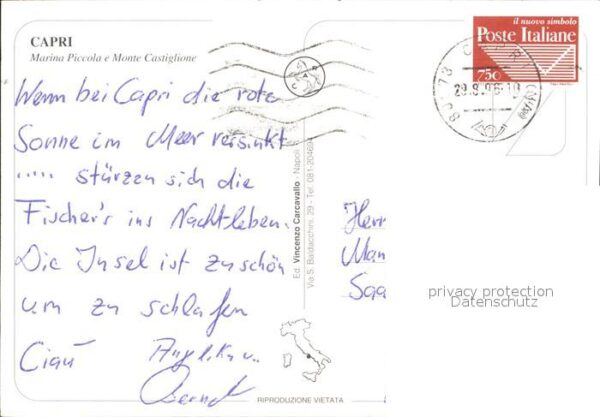 CAPRI
Marina Piccola e Monte Castiglione
Wenn bei Capri die rote
Sonne im Meer versinkt
..... stürzen sich die
Fischer's ins Nachtleben.
Die Insel ist zu schön
um zu schlafen
Ciaú Angelika u.
Bernd
Ed. Vincenzo Carcavallo - Napoli
Via S. Baldacchini, 29 - Tel. 081-20469
RIPRODUZIONE VIETATA
il nuovo simbolo
Poste Italiane
750
80073 CAPRI
29.8.96-10
Herr
Man
Saa
privacy protection
Datenschutz